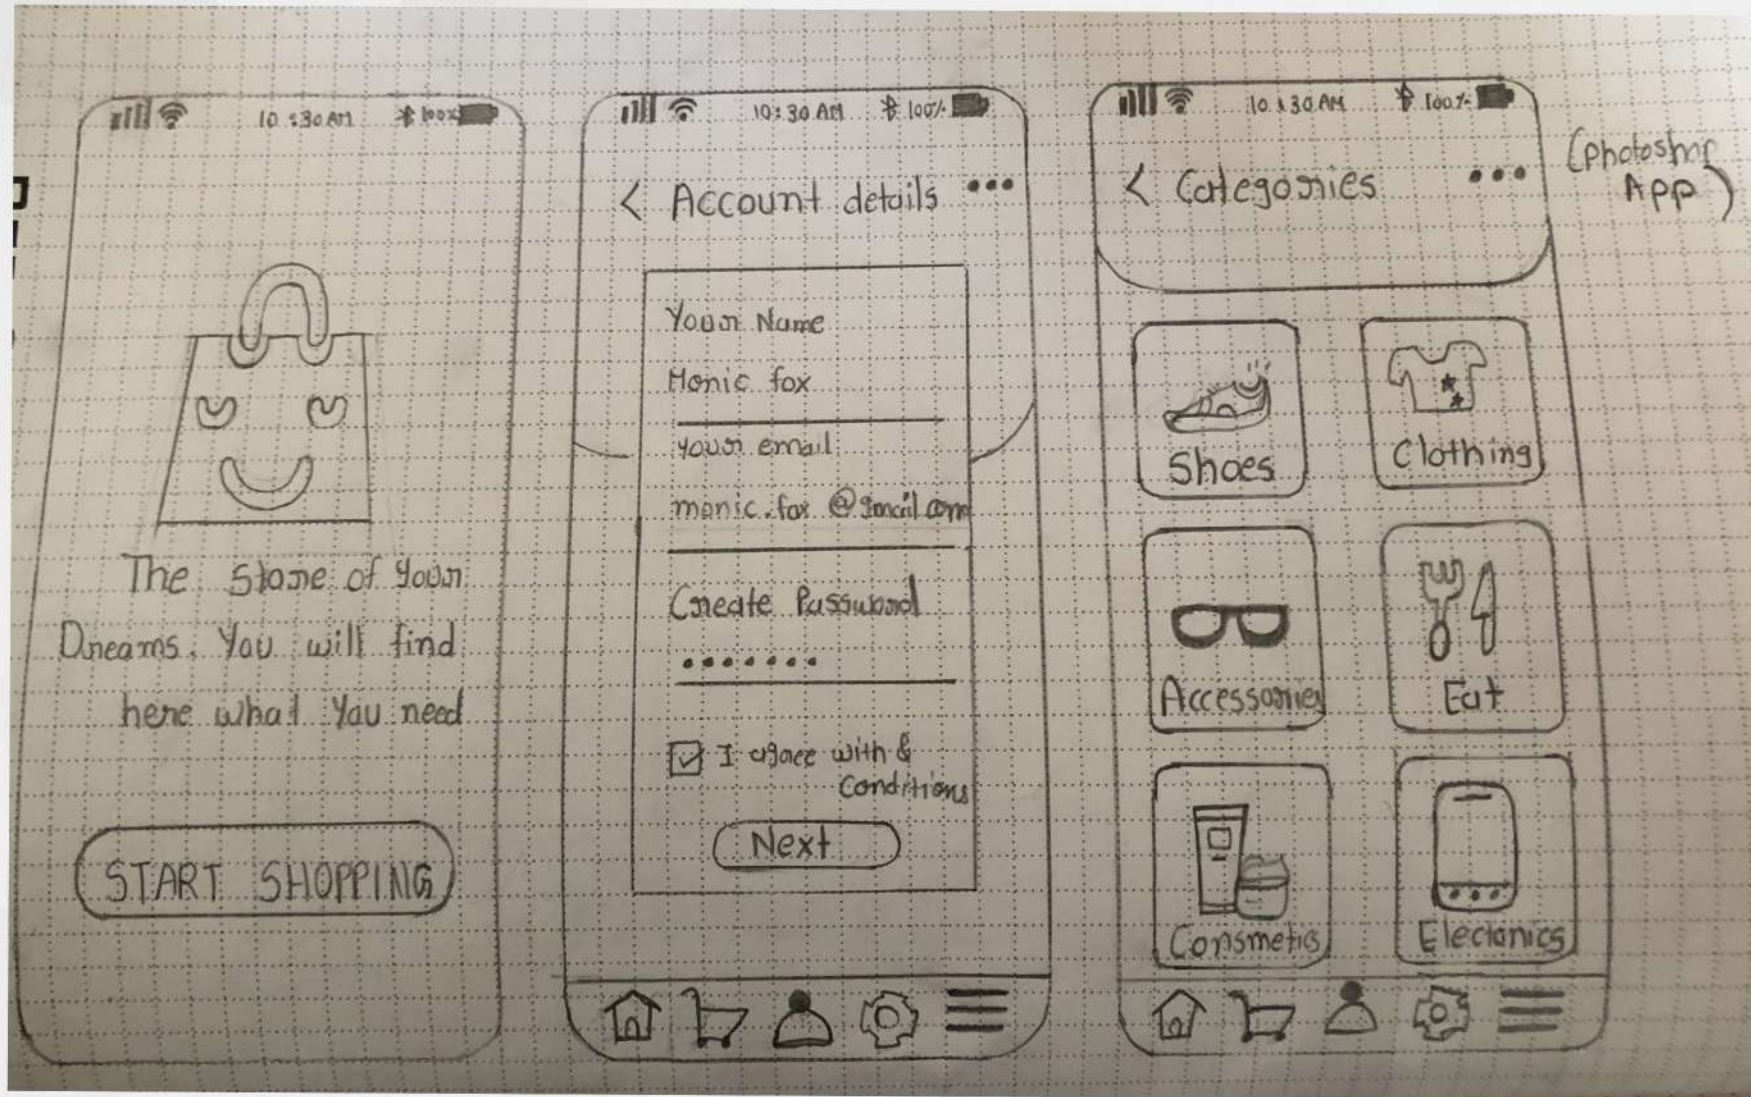 10:30 AM 100%
The Store of Your
Dreams. You will find
here what you need
START SHOPPING
10:30 AM 100%
< Account details •••
Your Name
Monic fox
your email
monic.fox @gmail.com
Create Password
•••••••
I agree with &
Conditions
Next
10:30 AM 100%
< Categories •••
(photoshop
App)
Shoes
Clothing
Accessories
Eat
Consmetics
Electonics